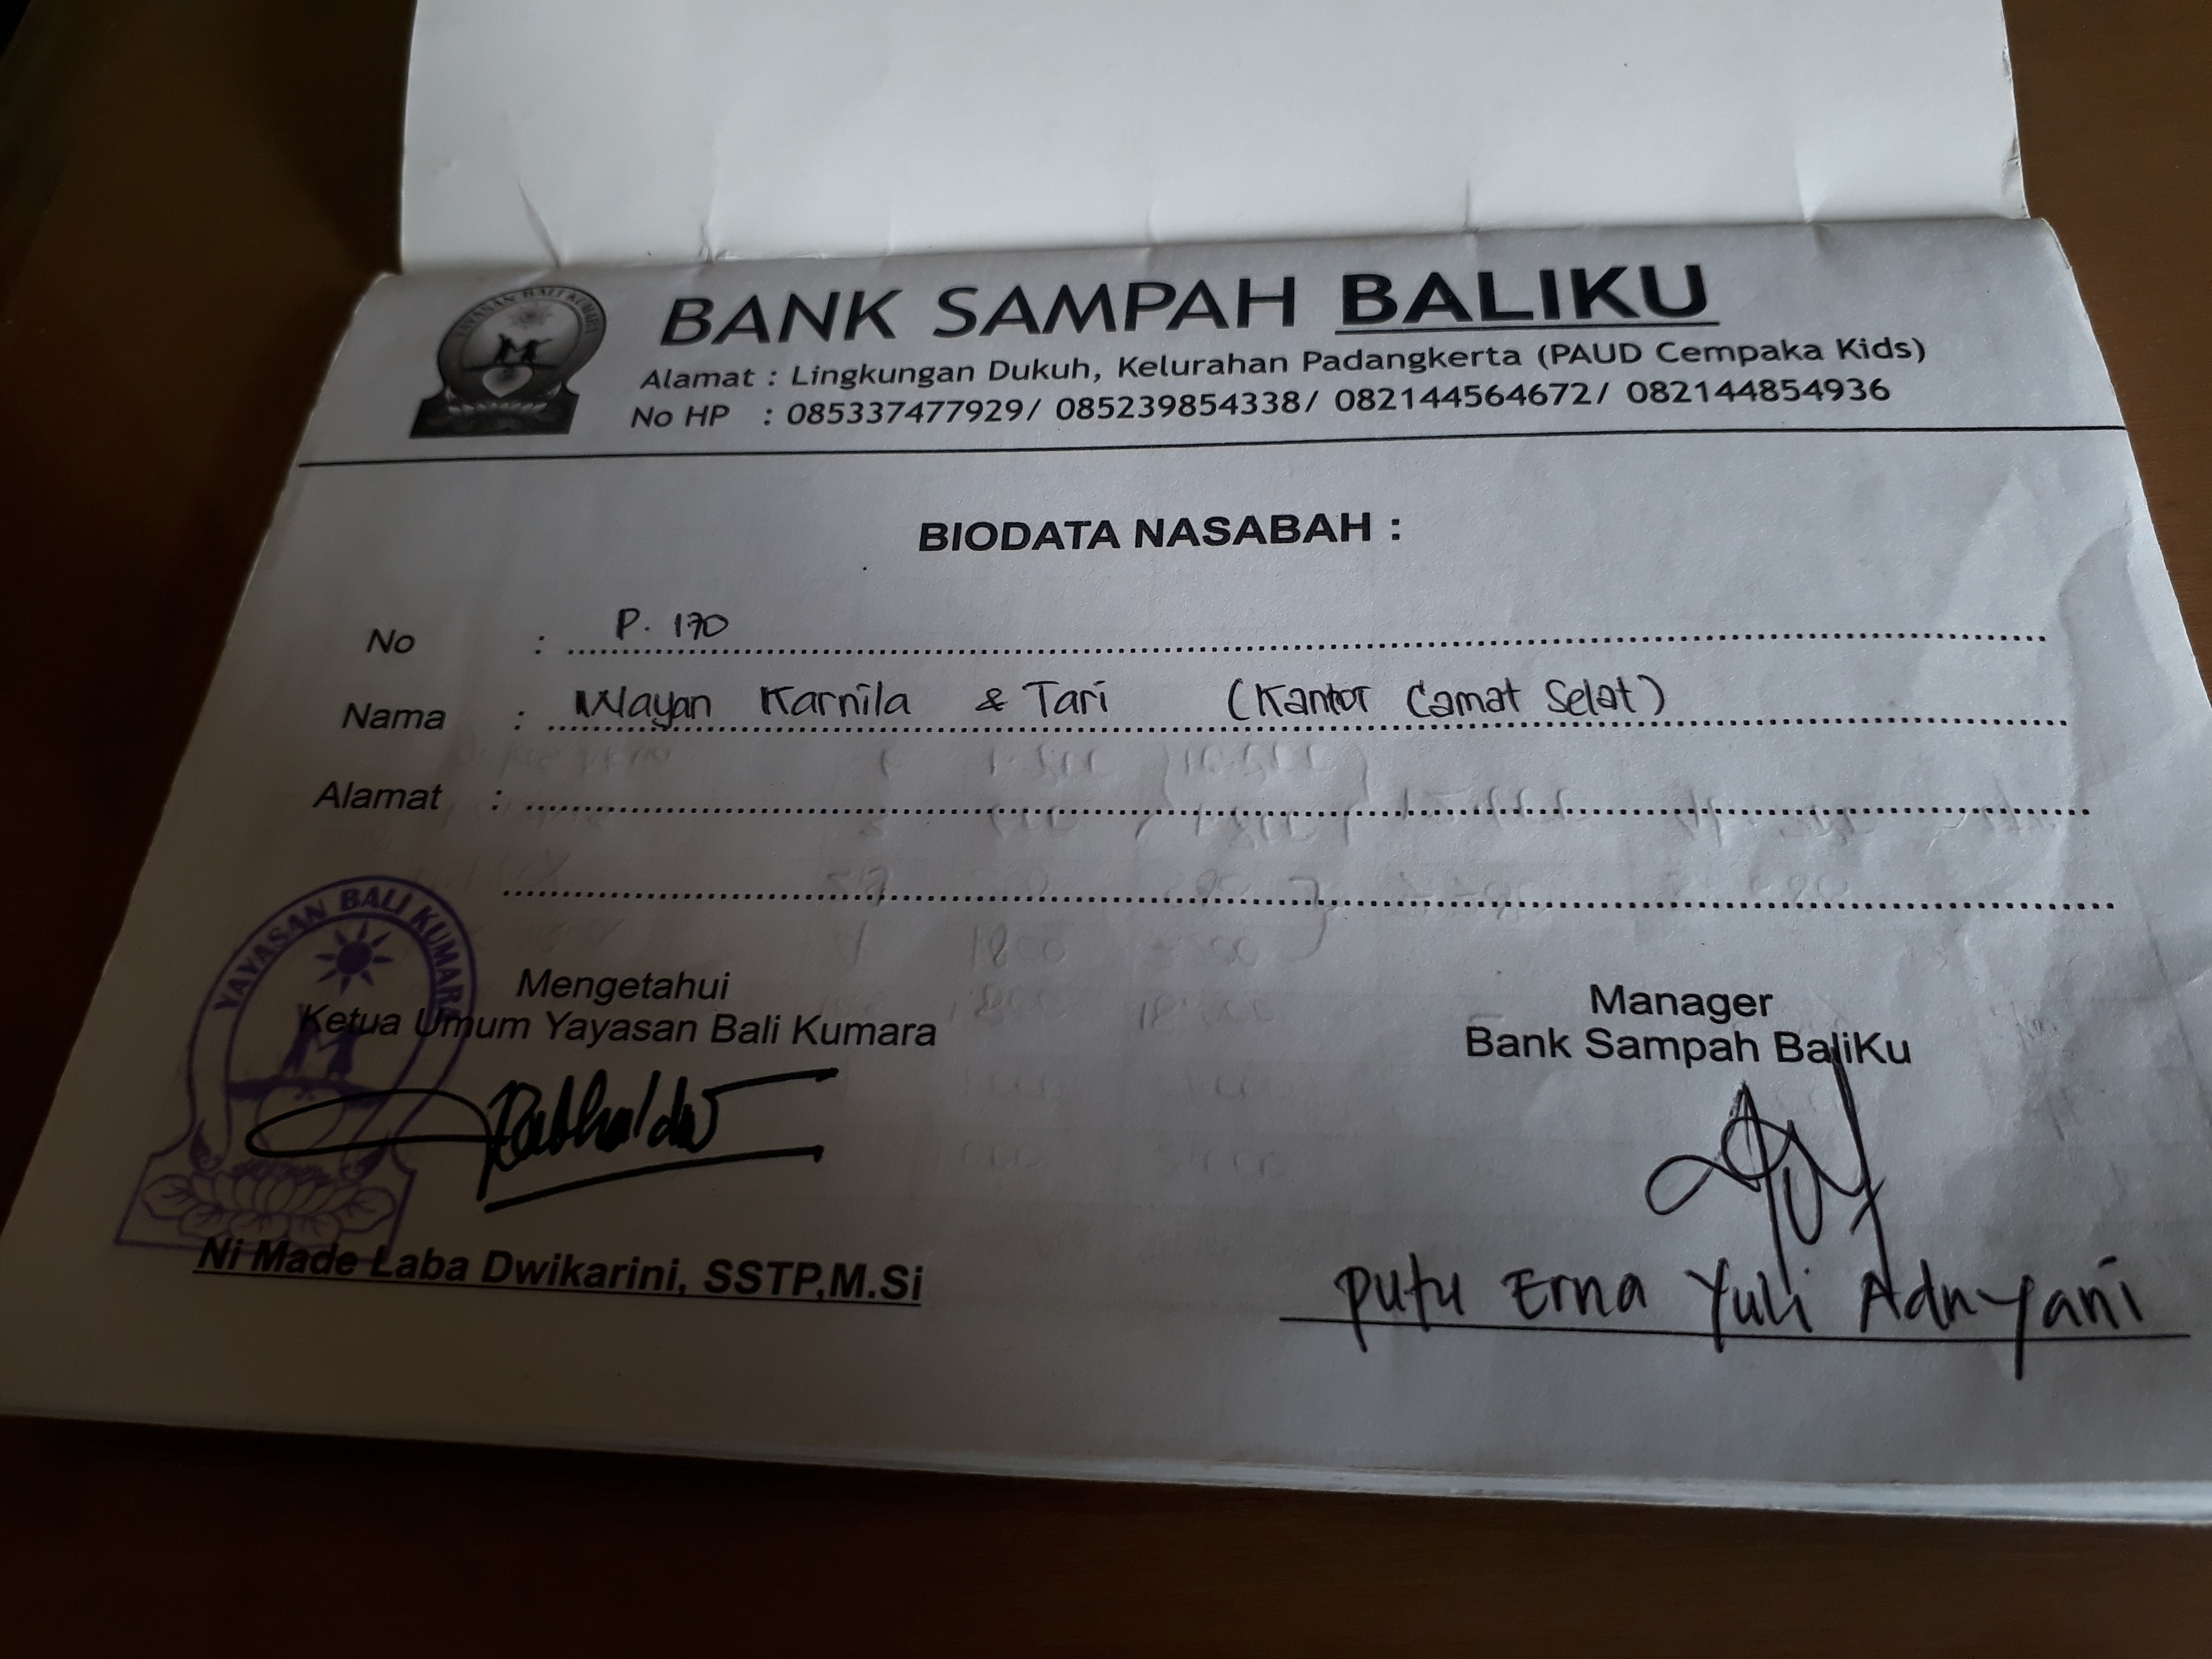 YAYASAN BALI KUMARA
BANK SAMPAH BALIKU
Alamat : Lingkungan Dukuh, Kelurahan Padangkerta (PAUD Cempaka Kids)
No HP : 085337477929/ 085239854338/ 082144564672/ 082144854936
BIODATA NASABAH :
No : P. 170
Nama : Wayan Karnila & Tari (Kantor Camat Selat)
Alamat :
YAYASAN BALI KUMARA
Mengetahui
Ketua Umum Yayasan Bali Kumara
Ni Made Laba Dwikarini, SSTP,M.Si
Manager
Bank Sampah BaliKu
Putu Erna Yuli Adnyani